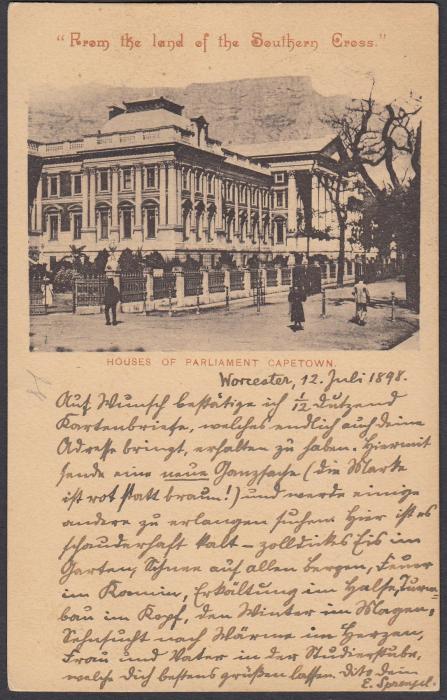 "From the land of the Southern Cross."
HOUSES OF PARLIAMENT CAPETOWN.
Worcester, 12. Juli 1898.
Auf Wunsch bestätige ich 1/12 Dutzend
Kartenbriefe, welches endlich auch deine
Adresse bringt, erhalten zu haben. Hiermit
sende eine neue Ganzsache (die Marke
ist rot statt braun!) und werde einige
andere zu erlangen suchen. Hier ist es
schauderhaft kalt – zolldickes Eis im
Garten, Schnee auf allen Bergen, Feuer
im Kamin, Erkältung im Halse, Turm-
bau im Kopf, den Winter im Magen,
Sehnsucht nach Wärme im Herzen,
Frau und Vater in der Studierstube,
welche Dich bestens grüßen lassen. Dito dein
E. Sprengel.